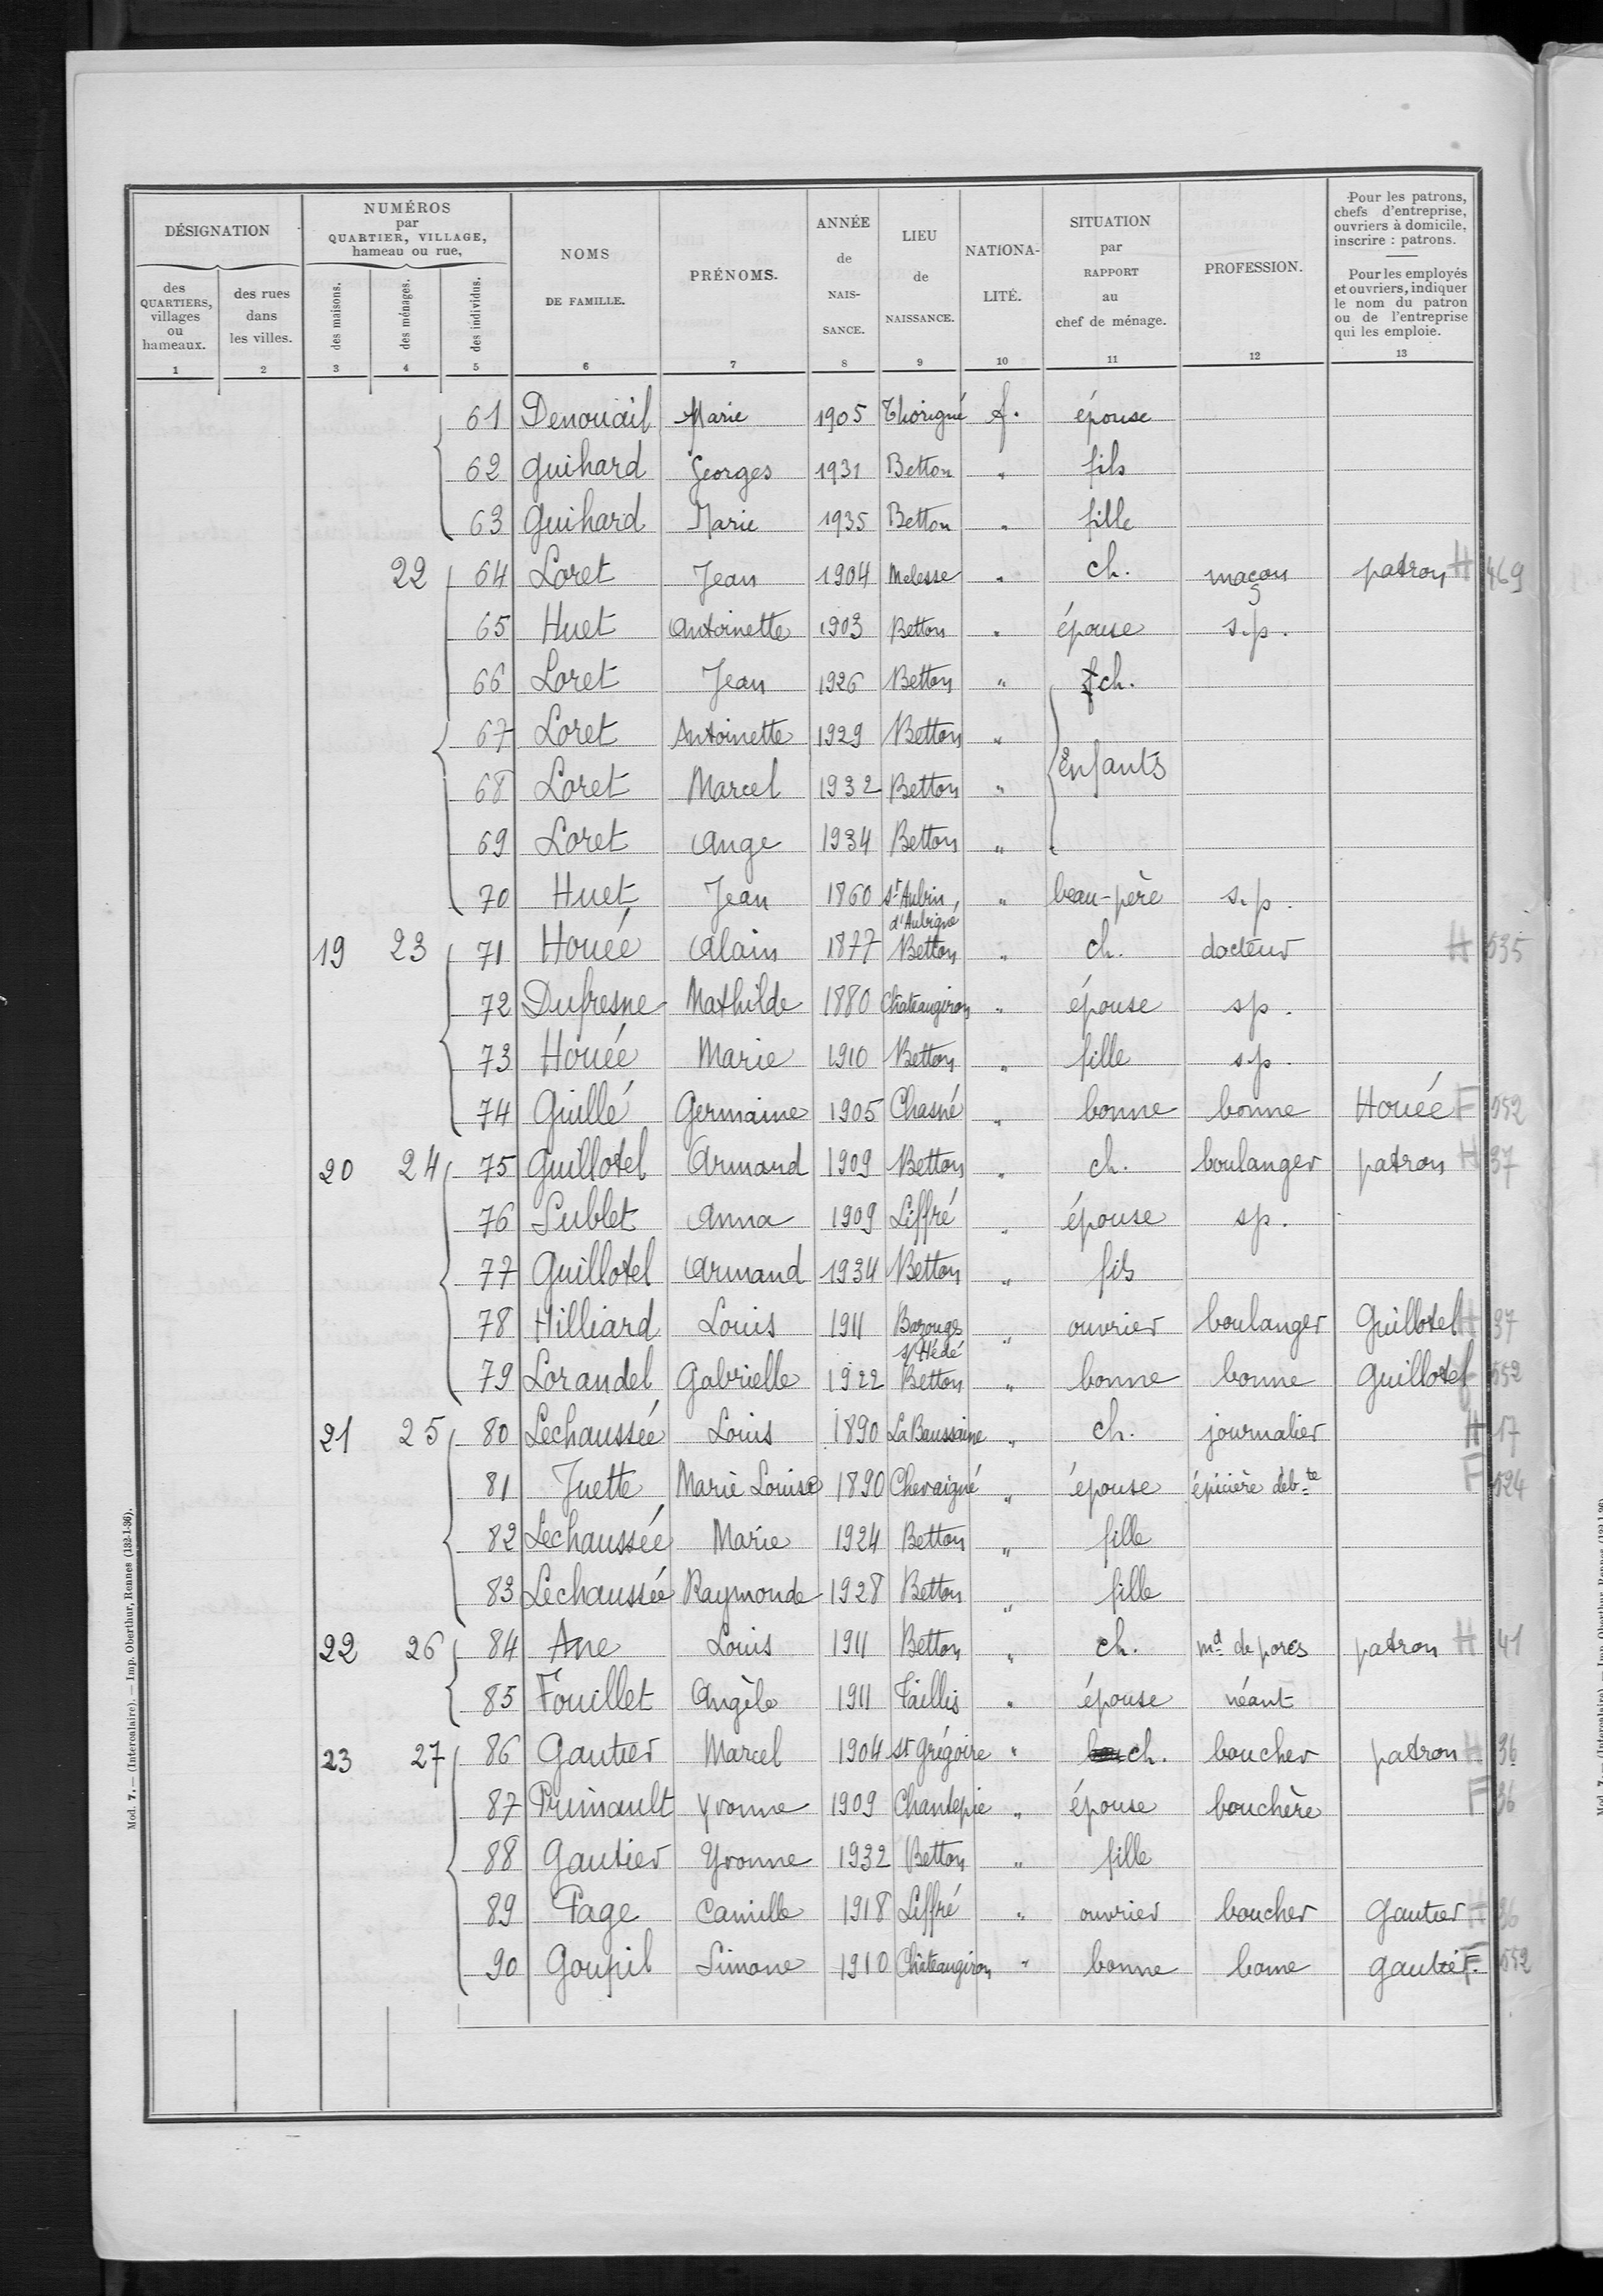 DÉSIGNATION
des QUARTIERS, villages ou hameaux.
des rues dans les villes.
NUMÉROS par QUARTIER, VILLAGE, hameau ou rue,
des maisons.
des ménages.
des individus.
NOMS DE FAMILLE.
PRÉNOMS.
ANNÉE de NAIS- SANCE.
LIEU de NAISSANCE.
NATIONA- LITÉ.
SITUATION par RAPPORT au chef de ménage.
PROFESSION.
Pour les patrons, chefs d'entreprise, ouvriers à domicile, inscrire : patrons.
Pour les employés et ouvriers, indiquer le nom du patron ou de l'entreprise qui les emploie.
1 2 3 4 5 6 7 8 9 10 11 12 13
61 Denouail Marie 1905 Thorigné f. épouse
62 Guihard Georges 1931 Betton " fils
63 Guihard Marie 1935 Betton " fille
22 64 Loret Jean 1904 Melesse " ch. maçon patron H 469
65 Huet Antoinette 1903 Betton " épouse s.p.
66 Loret Jean 1926 Betton " ch.
67 Loret Antoinette 1929 Betton "
Enfants
68 Loret Marcel 1932 Betton "
69 Loret Ange 1934 Betton "
70 Huet Jean 1860 St Aubin d'Aubigné " beau-père s.p.
19 23 71 Houée Alain 1877 Betton " ch. docteur H 535
72 Dufresne Mathilde 1880 Chateaugiron " épouse sp.
73 Houée Marie 1910 Betton " fille s.p.
74 Guillé Germaine 1905 Chasné " bonne bonne Houée F 552
20 24 75 Guillotel Armand 1909 Betton " ch. boulanger patron H 37
76 Sublet Anna 1909 Liffré " épouse sp.
77 Guillotel Armand 1934 Betton " fils
78 Hilliard Louis 1911 Bazouges s/ Hédé " ouvrier boulanger Guillotel H 37
79 Lorandel Gabrielle 1922 Betton " bonne bonne Guillotel 552
21 25 80 Lechaussée Louis 1890 La Baussaine " ch. journalier H 17
81 Juette Marie Louise 1890 Chevaigné " épouse épicière déb-te F 524
82 Lechaussée Marie 1924 Betton " fille
83 Lechaussée Raymonde 1928 Betton " fille
22 26 84 Ane Louis 1911 Betton " ch. md de porcs patron H 41
85 Fouillet Angèle 1911 Taillis " épouse néant
23 27 86 Gautier Marcel 1904 St Grégoire " ch. boucher patron H 36
87 Primault Yvonne 1909 Chantepie " épouse bouchère F 36
88 Gautier Yvonne 1932 Betton " fille
89 Page Camille 1918 Liffré " ouvrier boucher Gautier H 36
90 Goupil Simone 1910 Châteaugiron " bonne bonne Gautier F 552
Mod. 7. — (Intercalaire). — Imp. Oberthur, Rennes (132-1-36).